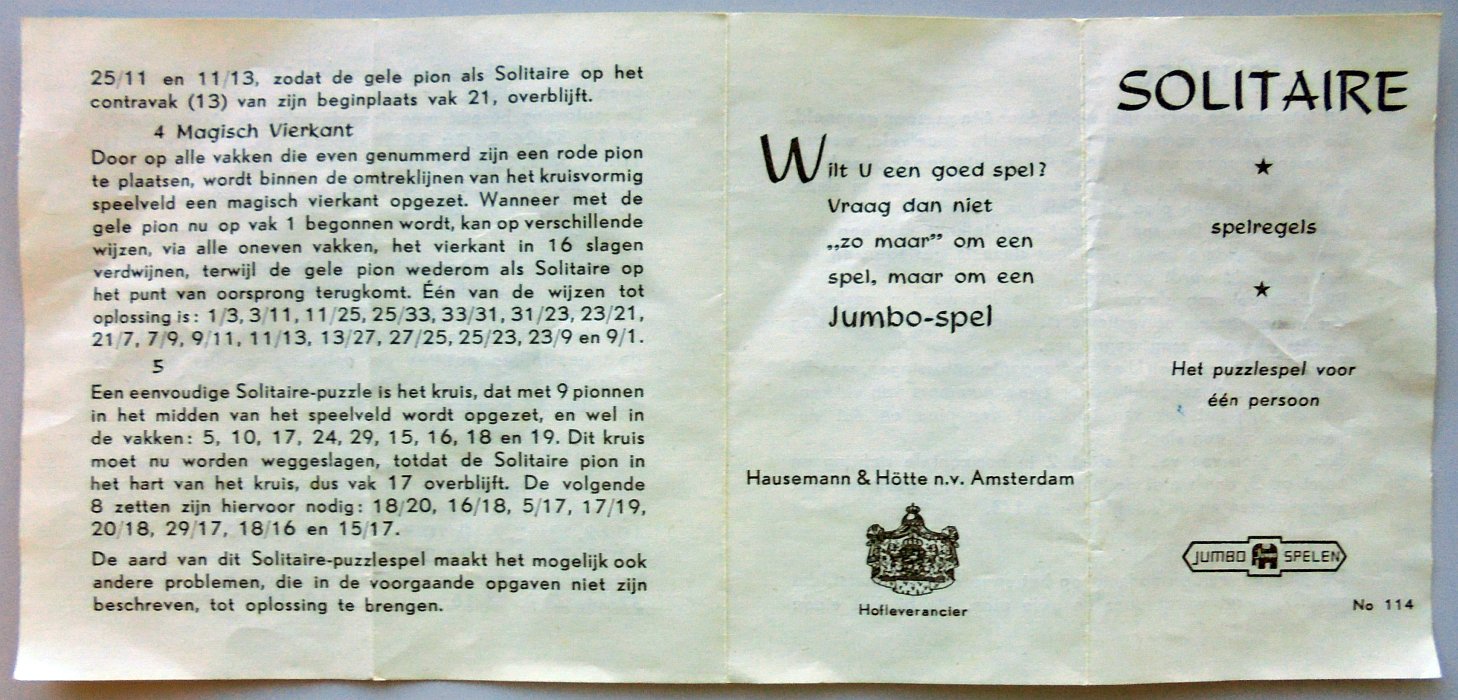 25/11 en 11/13, zodat de gele pion als Solitaire op het
contravak (13) van zijn beginplaats vak 21, overblijft.
4 Magisch Vierkant
Door op alle vakken die even genummerd zijn een rode pion
te plaatsen, wordt binnen de omtreklijnen van het kruisvormig
speelveld een magisch vierkant opgezet. Wanneer met de
gele pion nu op vak 1 begonnen wordt, kan op verschillende
wijzen, via alle oneven vakken, het vierkant in 16 slagen
verdwijnen, terwijl de gele pion wederom als Solitaire op
het punt van oorsprong terugkomt. Één van de wijzen tot
oplossing is: 1/3, 3/11, 11/25, 25/33, 33/31, 31/23, 23/21,
21/7, 7/9, 9/11, 11/13, 13/27, 27/25, 25/23, 23/9 en 9/1.
5
Een eenvoudige Solitaire-puzzle is het kruis, dat met 9 pionnen
in het midden van het speelveld wordt opgezet, en wel in
de vakken: 5, 10, 17, 24, 29, 15, 16, 18 en 19. Dit kruis
moet nu worden weggeslagen, totdat de Solitaire pion in
het hart van het kruis, dus vak 17 overblijft. De volgende
8 zetten zijn hiervoor nodig: 18/20, 16/18, 5/17, 17/19,
20/18, 29/17, 18/16 en 15/17.
De aard van dit Solitaire-puzzlespel maakt het mogelijk ook
andere problemen, die in de voorgaande opgaven niet zijn
beschreven, tot oplossing te brengen.
Wilt U een goed spel?
Vraag dan niet
„zo maar” om een
spel, maar om een
Jumbo-spel
Hausemann & Hötte n.v. Amsterdam
Hofleverancier
SOLITAIRE
spelregels
Het puzzlespel voor
één persoon
JUMBO SPELEN
No 114